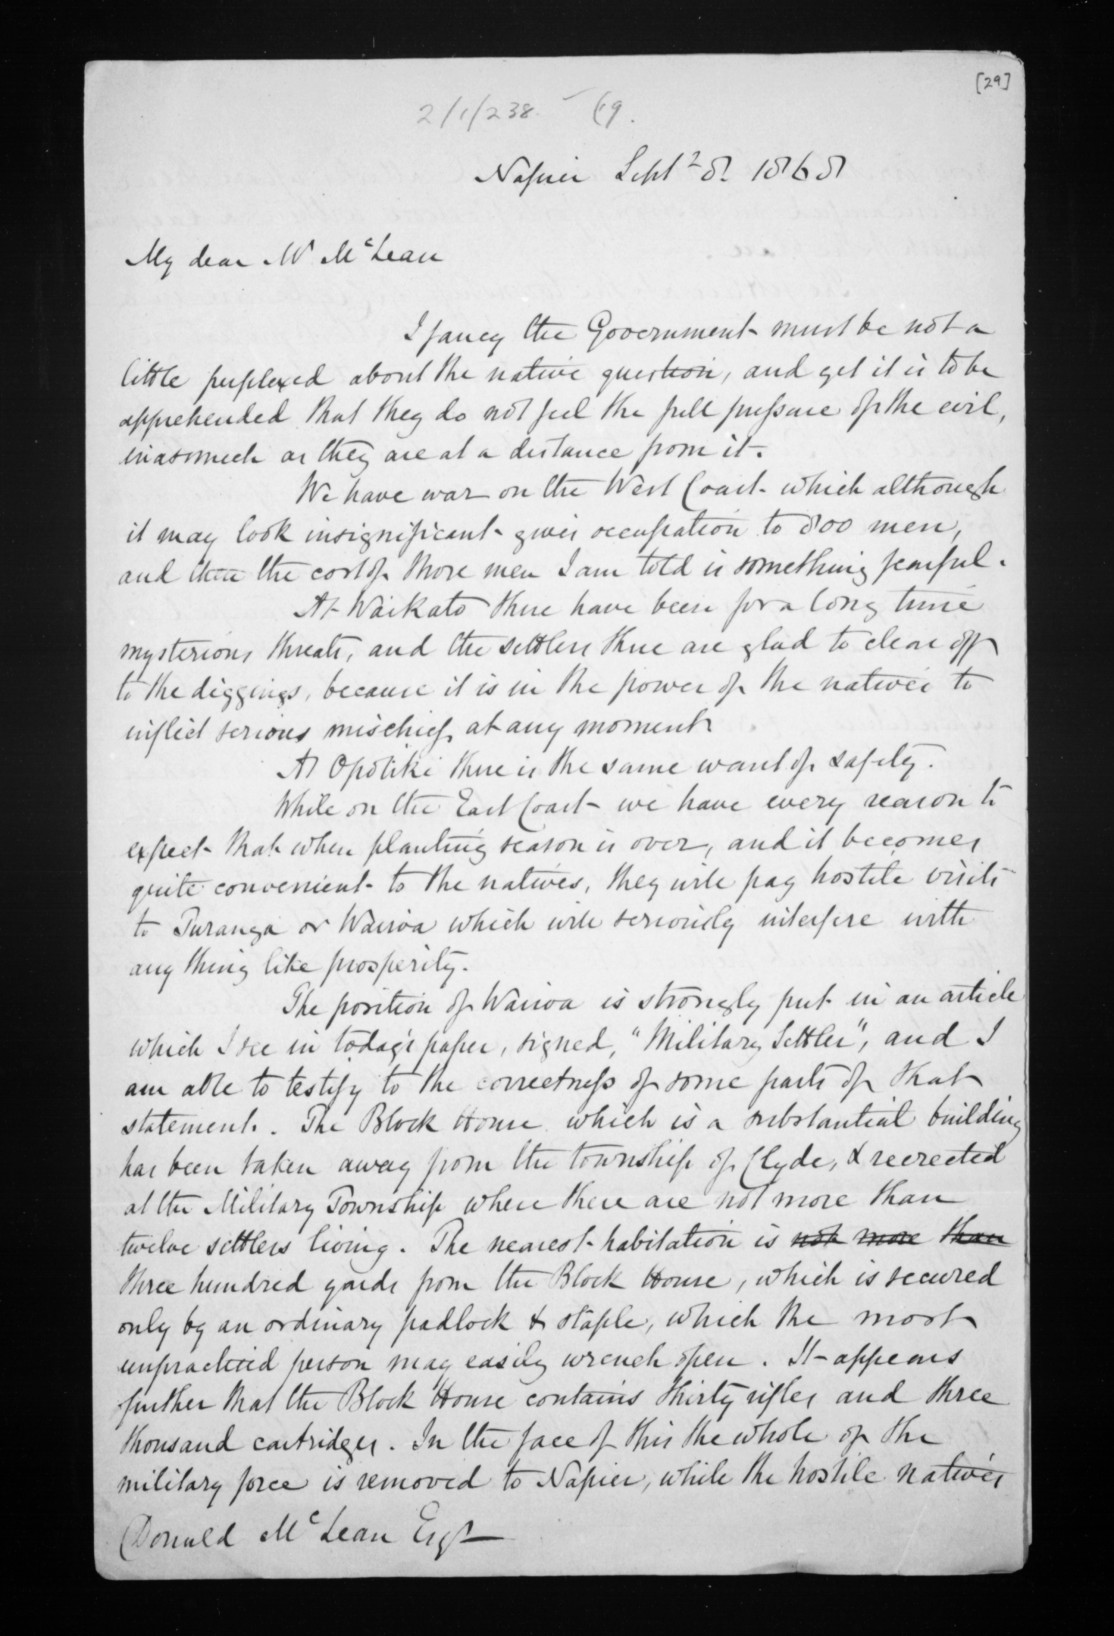 [29]
2/1/238 69.
Napier Sept 28. 1868
My dear Mr McLean
I fancy the Government must be not a
little perplexed about the native question, and yet it is to be
apprehended that they do not feel the full pressure of the evil,
inasmuch as they are at a distance from it.
We have war on the West Coast which although
it may look insignificant gives occupation to 800 men,
and then the cost of those men I am told is something fearful.
At Waikato there have been for a long time
mysterious threats, and the settlers there are glad to clear off
to the diggings, because it is in the power of the natives to
inflict serious mischief at any moment
At Opotiki there is the same want of safety.
While on the East Coast we have every reason to
expect that when planting season is over, and it becomes
quite convenient to the natives, they will pay hostile visits
to Turanga or Wairoa which will seriously interfere with
any thing like prosperity.
The position of Wairoa is strongly put in an article
which I see in today's paper, signed, "Military Settler", and I
am able to testify to the correctness of some parts of that
statement. The Block House which is a substantial building
has been taken away from the township of Clyde, & reerected
at the Military Township where there are not more than
twelve settlers living. The nearest habitation is not more than
three hundred yards from the Block House, which is secured
only by an ordinary padlock & staple, which the most
unpracticed person may easily wrench open. It appears
further that the Block House contains thirty rifles and three
thousand cartridges. In the face of this the whole of the
military force is removed to Napier, while the hostile natives
Donald McLean Esqr